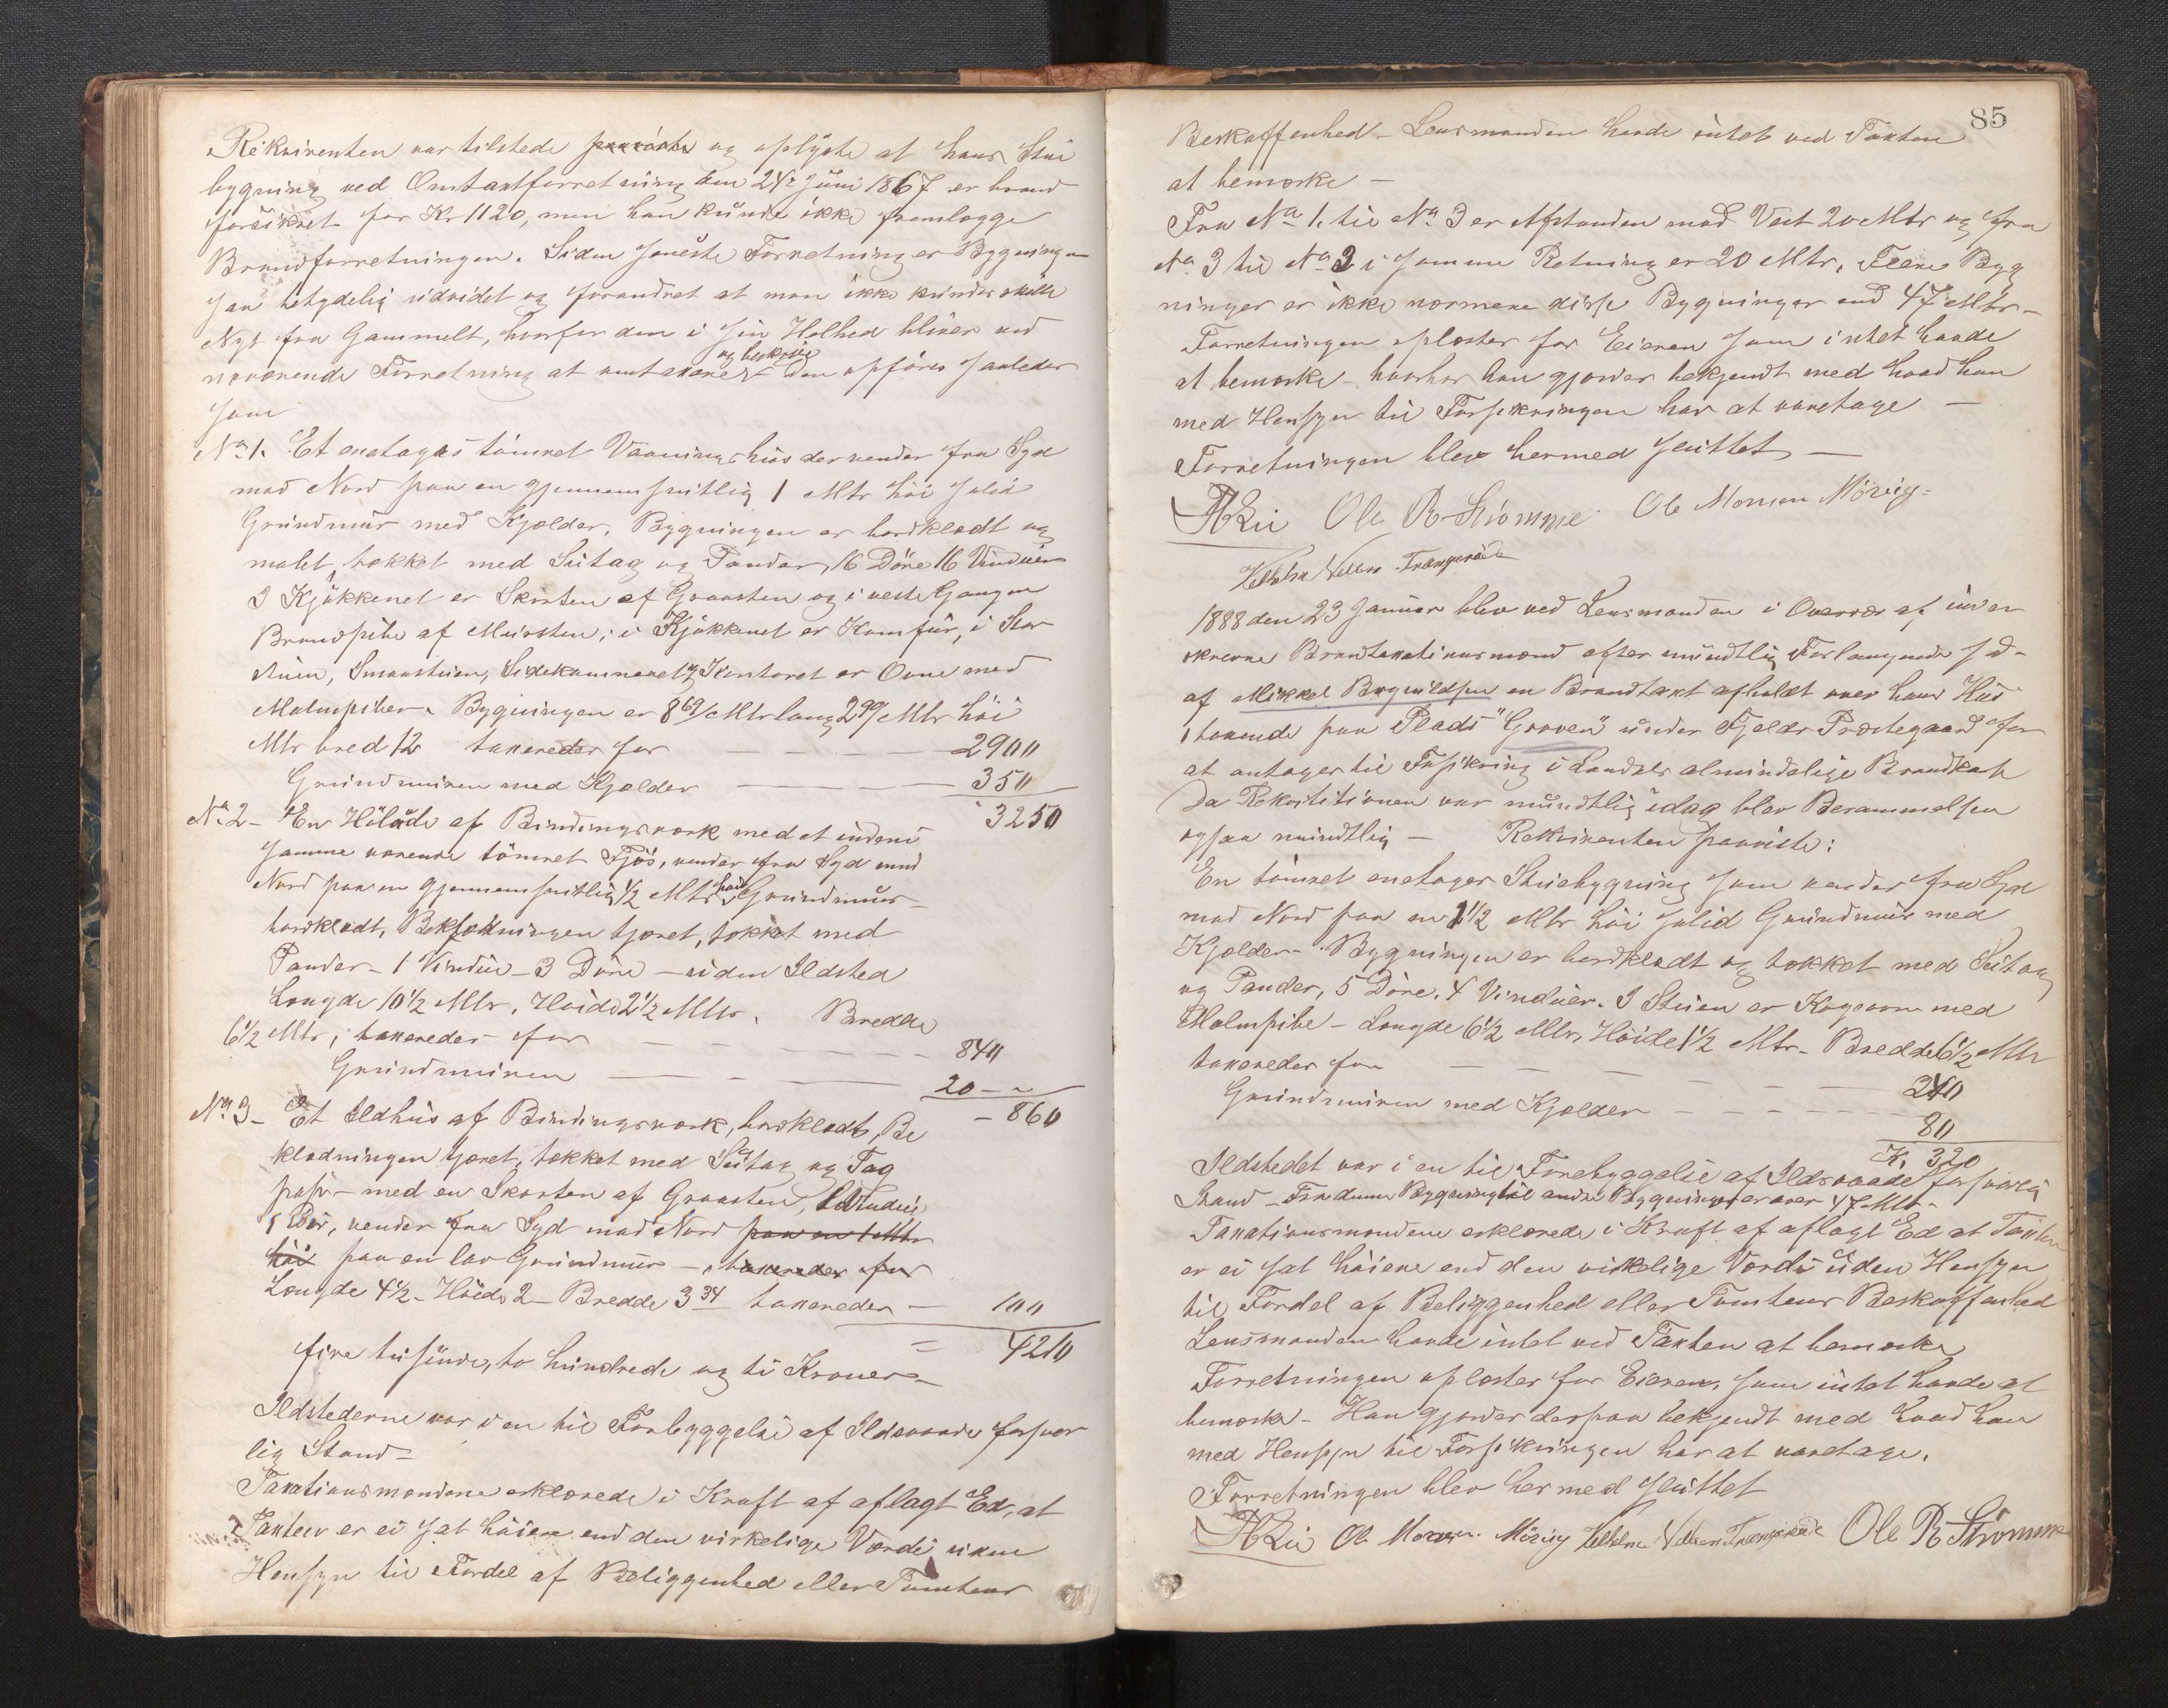 Rekvirenten var tilstede paaviste og oplyste at hans Stue
bygning ved Omtaxtforretning den 24de Juni 1867 er brand
forsikret for Kr 1120, men han kunde ikke fremlægge
Brandforretningen. Siden seneste Forretning er Bygningen
saa betydelig udvidet og forandret at man ikke kunde skille
Nyt fra Gammelt, hvorfor den i sin Helhed bliver ved
nærværende Forretning at omtaxere og beskrive den opføres saaledes
som
No 1. Et enetages tømret Vaaningshus der vender fra Syd
mod Nord paa en gjennemsnitlig 1 Mtr høi solid
Grundmur med Kjelder, Bygningen er bordklædt og
malet, tækket med Sutag og Pander, 16 Døre 16 Vinduer
I Kjøkkenet er Skorsten af Graasten og i vestre Gangen
Brandpibe af Mursten; i Kjøkkenet er Komfur, i Stor
stuen, Smaastuen, Sidekammeret og Kontoret er Ovne med
Malmpiber. Bygningen er 8 69/ Mtr lang 2 99/ Mtr høi
Mtr bred 12 taxeredes for — — — 2900
Grundmuren med Kjelder — — — 350
3250
No 2 – En Hølade af Bindingsværk med et indeni
samme værende tømret Fjøs, vender fra Syd mod
Nord paa en gjennemsnitlig 1/2 Mtr høi Grundmur –
bordklædt, Beklædningen tjæret, tækket med
Pander – 1 Vindue – 3 Døre – uden Ildsted
Længde 10 1/2 Mtr, Høide 2 1/2 Mtr. Bredde
6 1/2 Mtr; taxeredes for — — — 840
Grundmuren — — — 20 –
– 860
No 3 – Et Ildhus af Bindingsværk, bordklædt, Be
klædningen tjæret, tækket med Sutag og Tag
paper – med en Skorsten af Graasten, 1 Vindue
1 Dør, vender fra Syd mod Nord paa en 1 Mtr
høi paa en lav Grundmur – taxeredes for
Længde 4 1/2 – Høide 2 – Bredde 3 34 taxeredes — 100
= 4210
fire tusinde, to hundrede og ti Kroner –
Ildstederne var i en til Forebyggelse af Ildsvaade forsvar
lig Stand –
Taxationsmændene erklærede i Kraft af aflagt Ed, at
Taxten er ei sat høiere end den virkelige Værdi uden
Hensyn til Fordel af Beliggenhed eller Tomtens
85
Beskaffenhed – Lensmanden havde intet ved Taxten
at bemærke –
Fra No 1. til No 3 er Afstanden mod Vest 20 Mtr og fra
No 3 til No 2 i samme Retning er 20 Mtr, Flere Byg
ninger er ikke nærmere disse Bygninger end 47 Mtr –
Forretningen oplæstes for Eieren som intet havde
at bemærke – hvorhos han gjordes bekjendt med hvad han
med Hensyn til Forsikringen har at varetage —
Forretningen blev hermed sluttet —
Ole R. Strømme. Ole Monsen Mözvig
1888 den 23 Januar blev ved Lensmanden i Overvær af under
skrevne Brandtaxationsmænd efter mundtlig Forlangende
af Mikkel Brynildsen en Brandtaxt afholdt over hans Hus
staaende paa Plads "Groven" under Fjelds Præstegaard for
at antages til Forsikring i Landets almindelige Brandkasse
Da Rekvisitionen var mundtlig idag blev Berammelsen
ogsaa mundtlig — Rekvirenten paaviste:
En tømret enetages Stuebygning som vender fra Syd
mod Nord paa en 1 1/2 Mtr høi solid Grundmur med
Kjelder – Bygningen er bordklædt og tækket med Sutag
og Pander, 5 Døre, 4 Vinduer. I Stuen er Kogeovn med
Malmpibe – Længde 6 1/2 Mtr, Høide 1 1/2 Mtr – Bredde 6 1/2 Mtr
taxeredes for — — — 240
Grundmuren med Kjelder — — — 80
K. 320
Ildstedet var i en til Forebyggelse af Ildsvaade forsvarlig
Stand – Fra denne Bygning til andre Bygninger er over 47 Mtr –
Taxationsmændene erklærede i Kraft af aflagt Ed at Taxten
er ei sat høiere end den virkelige Værdi uden Hensyn
til Fordel af Beliggenhed eller Tomtens Beskaffenhed
Lensmanden havde intet ved Taxten at bemærke
Forretningen oplæstes for Eieren, som intet havde at
bemærke – Han gjordes derpaa bekjendt med hvad han
med Hensyn til Forsikringen har at varetage.
Forretningen blev hermed sluttet
Ole Monsen Mözvig Ole R. Strømme